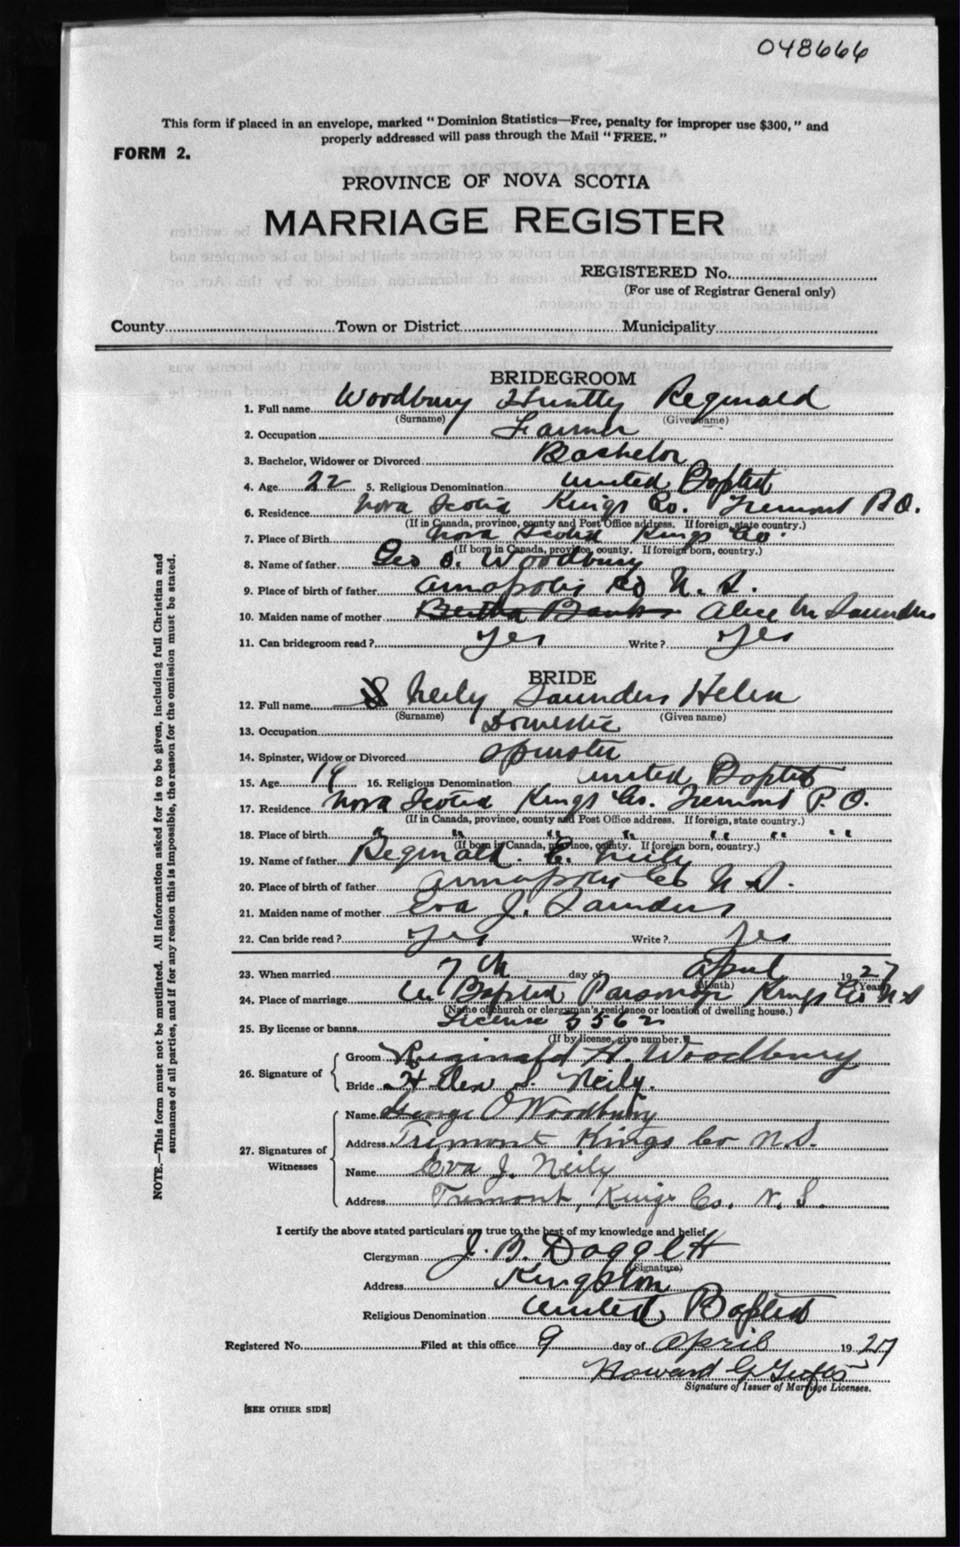 048666
This form if placed in an envelope, marked "Dominion Statistics—Free, penalty for improper use $300," and
properly addressed will pass through the Mail "FREE."
FORM 2.
PROVINCE OF NOVA SCOTIA
MARRIAGE REGISTER
REGISTERED No.
(For use of Registrar General only)
County Town or District Municipality
BRIDEGROOM
1. Full name Woodbury Huntly Reginald
(Surname) (Given name)
2. Occupation Farmer
3. Bachelor, Widower or Divorced Bachelor
4. Age 22 5. Religious Denomination United Baptist
6. Residence Nova Scotia Kings Co. Tremont P.O.
(If in Canada, province, county and Post Office address. If foreign, state country.)
7. Place of Birth Nova Scotia Kings Co.
(If born in Canada, province, county. If foreign born, country.)
8. Name of father Geo O. Woodbury
9. Place of birth of father Annapolis Co N. S.
10. Maiden name of mother Bertha Banks Alice M Saunders
11. Can bridegroom read? Yes Write? Yes
BRIDE
12. Full name S Neily Saunders Helen
(Surname) (Given name)
13. Occupation Domestic
14. Spinster, Widow or Divorced Spinster
15. Age 19 16. Religious Denomination United Baptist
17. Residence Nova Scotia Kings Co. Tremont P.O.
(If in Canada, province, county and Post Office address. If foreign, state country.)
18. Place of birth " " " " " " "
(If born in Canada, province, county. If foreign born, country.)
19. Name of father Reginald. E. Neily
20. Place of birth of father Annapolis Co N. S.
21. Maiden name of mother Eva J. Saunders
22. Can bride read? Yes Write? Yes
23. When married 7th day of April 1927
(Month) (Year)
24. Place of marriage U. Baptist Parsonage Kings Co N.S
(Name of church or clergyman's residence or location of dwelling house.)
25. By license or banns License 3562
(If by license, give number.)
26. Signature of
Groom Reginald H. Woodbury
Bride Helen S. Neily.
27. Signatures of Witnesses
Name George O Woodbury
Address Tremont Kings Co N.S.
Name Eva J. Neily
Address Tremont, Kings Co. N. S.
I certify the above stated particulars are true to the best of my knowledge and belief.
Clergyman J. B. Daggett
(Signature)
Address Kingston
Religious Denomination United Baptist
Registered No. Filed at this office 9 day of April 1927
Howard G
Signature of Issuer of Marriage Licenses.
[SEE OTHER SIDE]
NOTE.—This form must not be mutilated. All information asked for is to be given, including full Christian and
surnames of all parties, and if for any reason this is impossible, the reason for the omission must be stated.